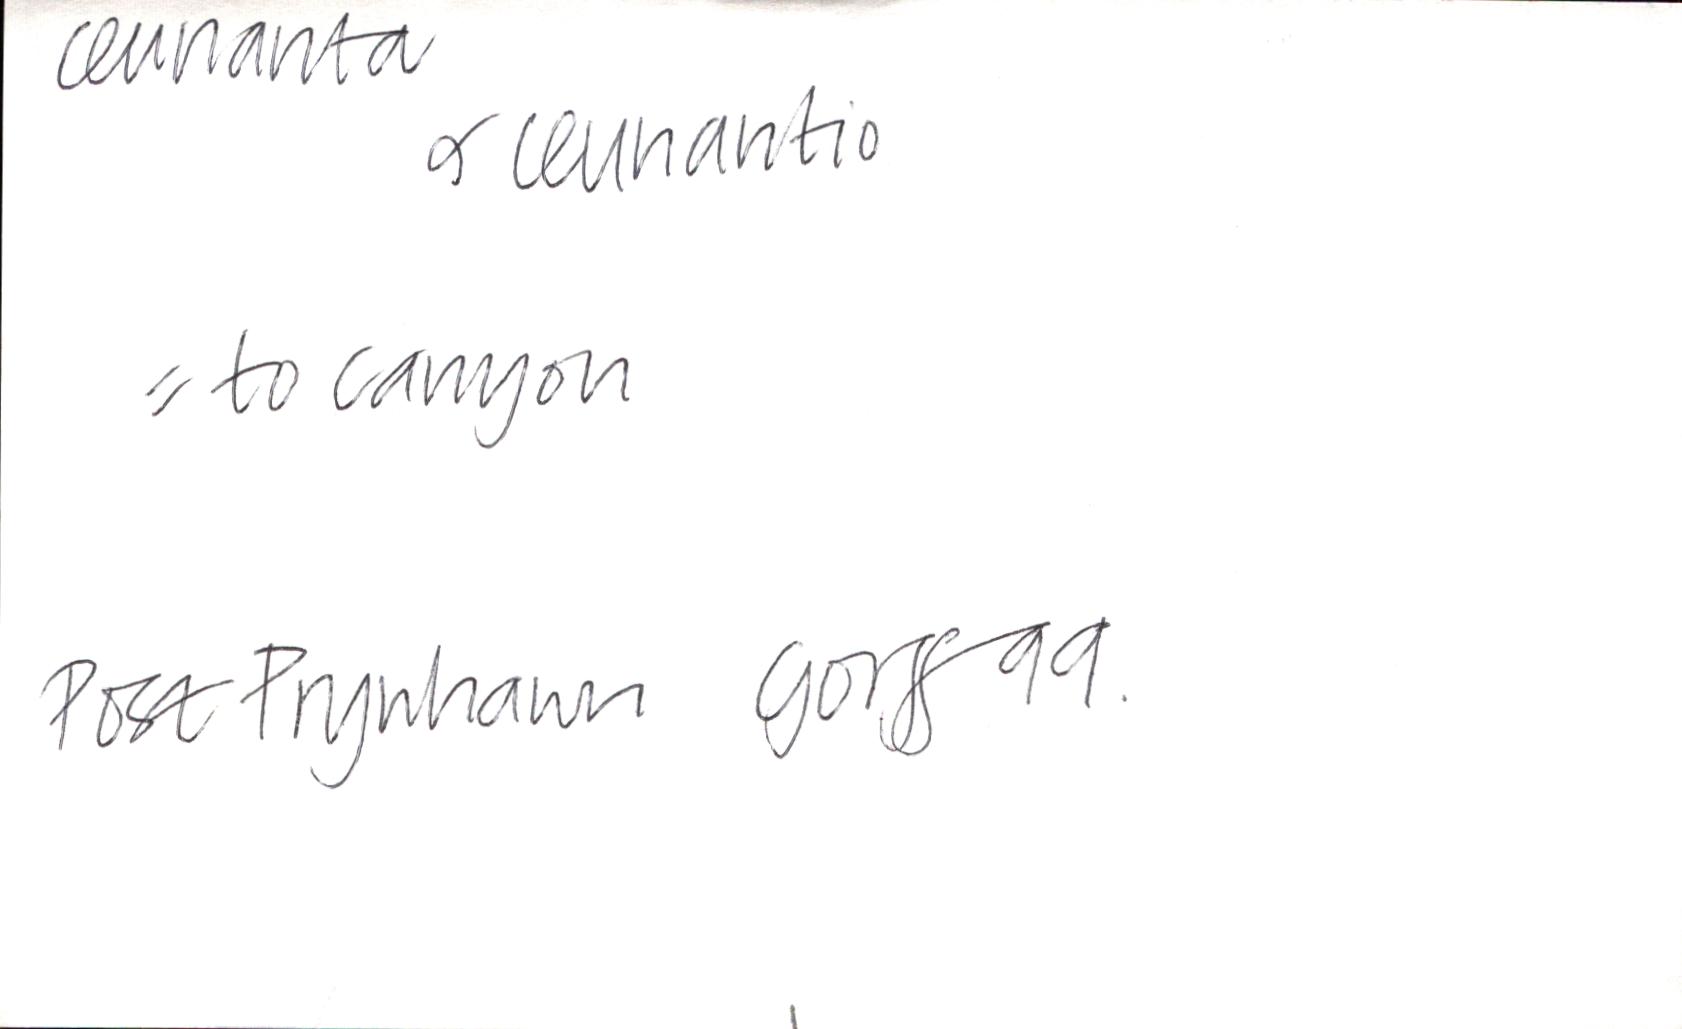 ceunanta
or ceunantio
= to canyon
Post Prynhawn Gorff 99.